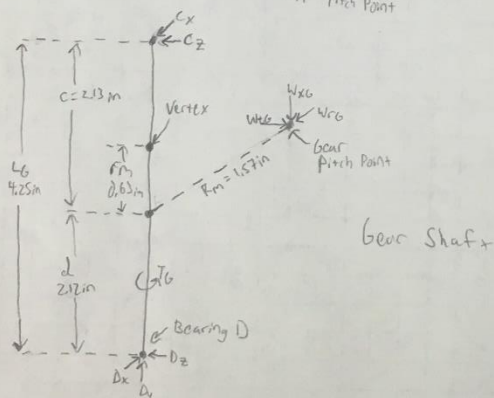 Pitch Point
Cx
Cz
C=2.13 in
Vertex
WxG
WtG
WrG
Gear
Pitch Point
LG
4.25in
rm
0.63in
Rm = 1.57in
Gear Shaft
d
2.12in
TG
Bearing D
Dz
Dx
Dy